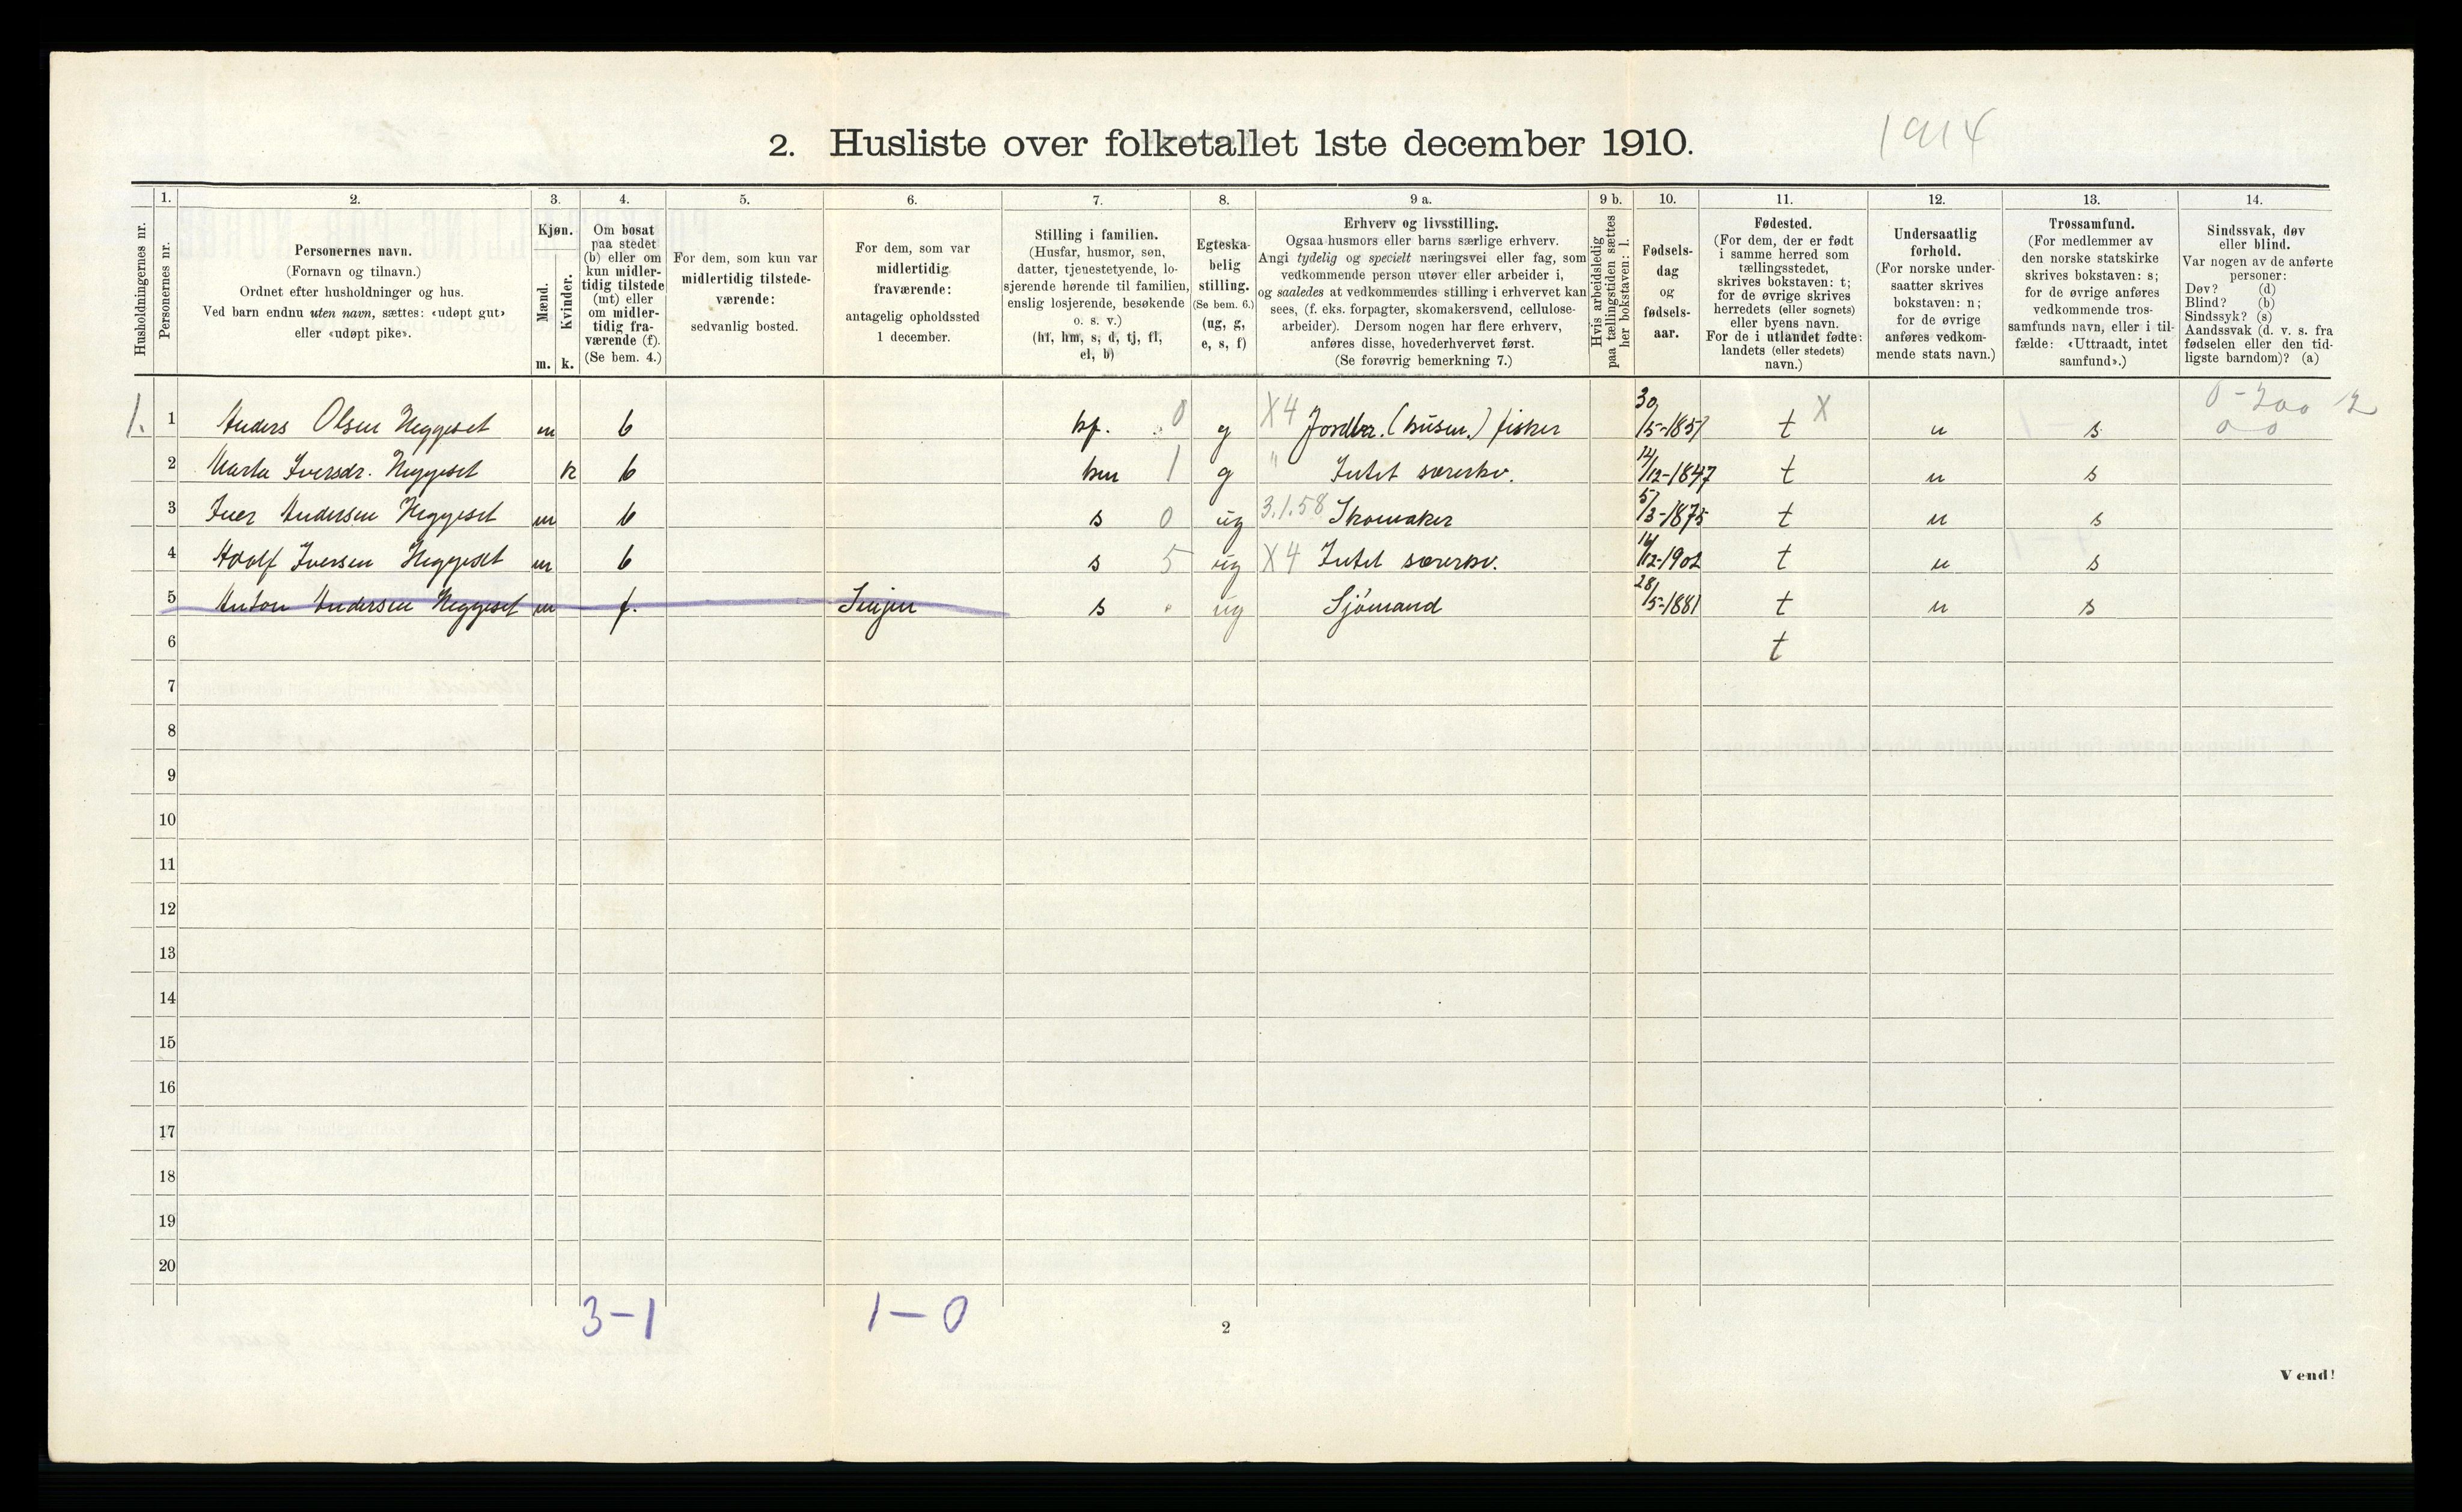 2. Husliste over folketallet 1ste december 1910.
1914
Husholdningernes nr.
1.
Personernes nr.
2.
Personernes navn.
(Fornavn og tilnavn.)
Ordnet efter husholdninger og hus.
Ved barn endnu uten navn, sættes: «udøpt gut»
eller «udøpt pike».
3.
Kjøn.
Mænd.
Kvinder.
m. k.
4.
Om bosat
paa stedet
(b) eller om
kun midler-
tidig tilstede
(mt) eller
om midler-
tidig fra-
værende (f).
(Se bem. 4.)
5.
For dem, som kun var
midlertidig tilstede-
værende:
sedvanlig bosted.
6.
For dem, som var
midlertidig
fraværende:
antagelig opholdssted
1 december.
7.
Stilling i familien.
(Husfar, husmor, søn,
datter, tjenestetyende, lo-
sjerende hørende til familien,
enslig losjerende, besøkende
o. s. v.)
(hf, hm, s, d, tj, fl,
el, b)
8.
Egteska-
belig
stilling.
(Se bem. 6.)
(ug, g,
e, s, f)
9 a.
Erhverv og livsstilling.
Ogsaa husmors eller barns særlige erhverv.
Angi tydelig og specielt næringsvei eller fag, som
vedkommende person utøver eller arbeider i,
og saaledes at vedkommendes stilling i erhvervet kan
sees, (f. eks. forpagter, skomakersvend, cellulose-
arbeider). Dersom nogen har flere erhverv,
anføres disse, hovederhvervet først.
(Se forøvrig bemerkning 7.)
9 b.
Hvis arbeidsledig
paa tællingstiden sættes
her bokstaven: l.
10.
Fødsels-
dag
og
fødsels-
aar.
11.
Fødested.
(For dem, der er født
i samme herred som
tællingsstedet,
skrives bokstaven: t;
for de øvrige skrives
herredets (eller sognets)
eller byens navn.
For de i utlandet fødte:
landets (eller stedets)
navn.)
12.
Undersaatlig
forhold.
(For norske under-
saatter skrives
bokstaven: n;
for de øvrige
anføres vedkom-
mende stats navn.)
13.
Trossamfund.
(For medlemmer av
den norske statskirke
skrives bokstaven: s;
for de øvrige anføres
vedkommende tros-
samfunds navn, eller i til-
fælde: «Uttraadt, intet
samfund».)
14.
Sindssvak, døv
eller blind.
Var nogen av de anførte
personer:
Døv? (d)
Blind? (b)
Sindssyk? (s)
Aandssvak (d. v. s. fra
fødselen eller den tid-
ligste barndom)? (a)
1. 1 Anders Olsen Heggeset m b hf. 0 g X4 Jordbr. (husm.) fisker 30/5-1857 t X n s
2 Marta Iversdr. Heggeset k b hm 1 g " Intet særerhv. 14/12-1847 t n s
3 Iver Andersen Heggeset m b s 0 ug 3.1.58 Skomaker 5/3-1875 t n s
4 Adolf Iversen Heggeset m b s 5 ug X4 Intet særerhv. 14/12-1902 t n s
5 Anton Andersen Heggeset m f. s ug Sjømand 28/5-1881 t n s
6 t
7
8
9
10
11
12
13
14
15
16
17
18
19
20
3-1 1-0
2
Vend!